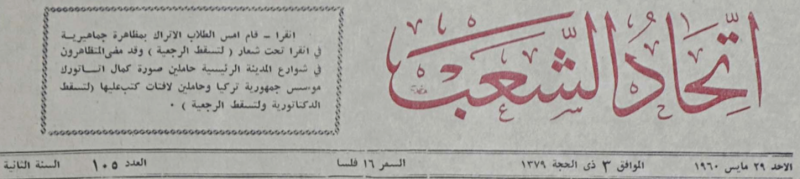 اتحاد الشعب
انقرا – قام امس الطلاب الاتراك بمظاهرة جماهيرية
في انقرا تحت شعار ( لتسقط الرجعية ) وقد مضى المتظاهرون
في شوارع المدينة الرئيسية حاملين صورة كمال اتاتورك
موسس جمهورية تركيا وحاملين لافتات كتب عليها ( لتسقط
الدكتاتورية ولتسقط الرجعية ) ٠
الاحد ٢٩ مايس ١٩٦٠ الموافق ٣ ذي الحجة ١٣٧٩ السعر ١٦ فلسا العدد ١٠٥ السنة الثانية